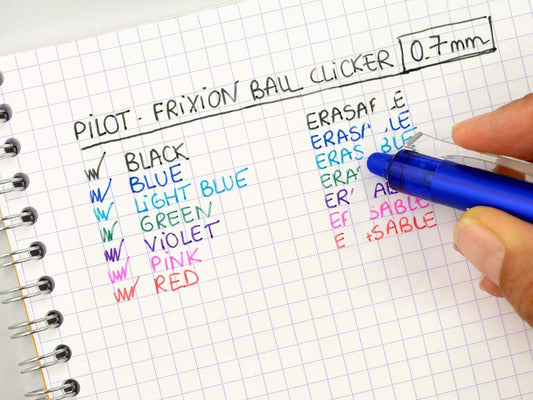 PILOT. FRIXION BALL CLICKER 0.7mm
BLACK
BLUE
LIGHT BLUE
GREEN
VIOLET
PINK
RED
ERASA LE
ERASA LE
ERAS BLE
ERA
ER AB
ER SABLE
E SABLE